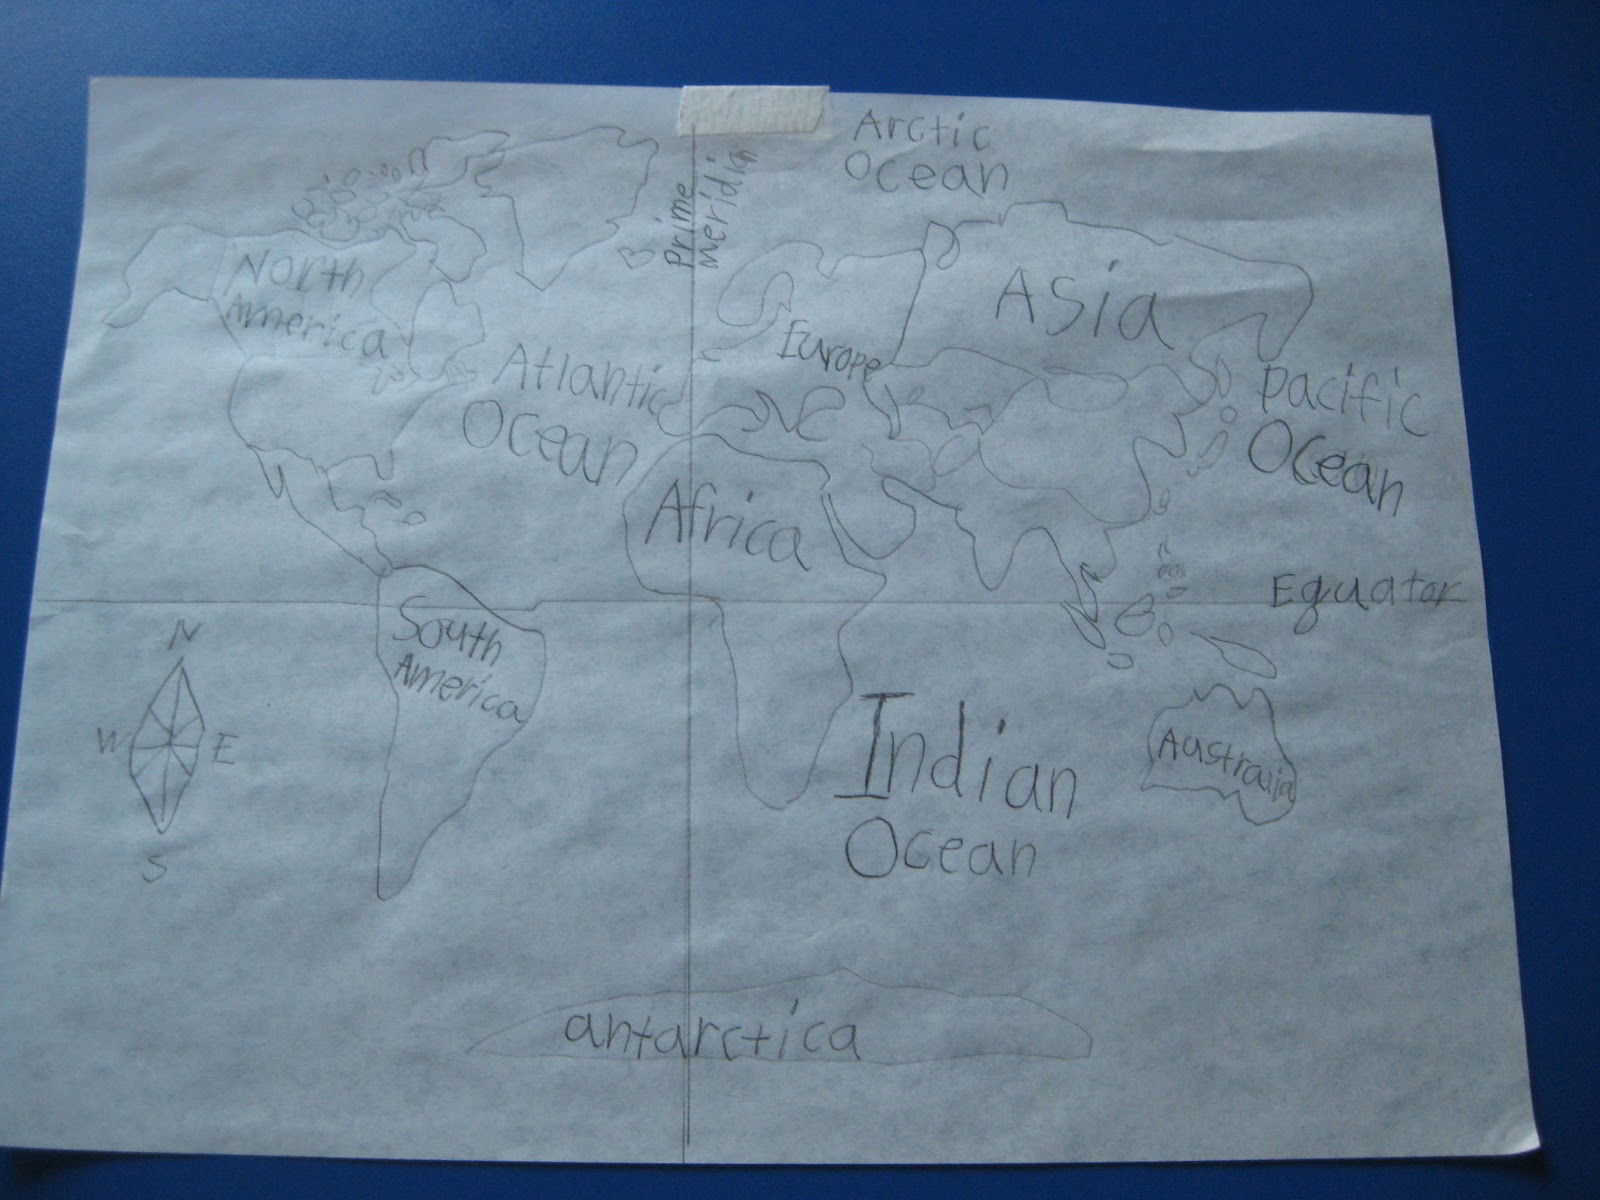 Arctic
Ocean
Prime
Meridian
North
America
Asia
Europe
Atlantic
Ocean
Pacific
Ocean
Africa
Equator
South
America
N
W
E
S
Indian
Ocean
Australia
antarctica